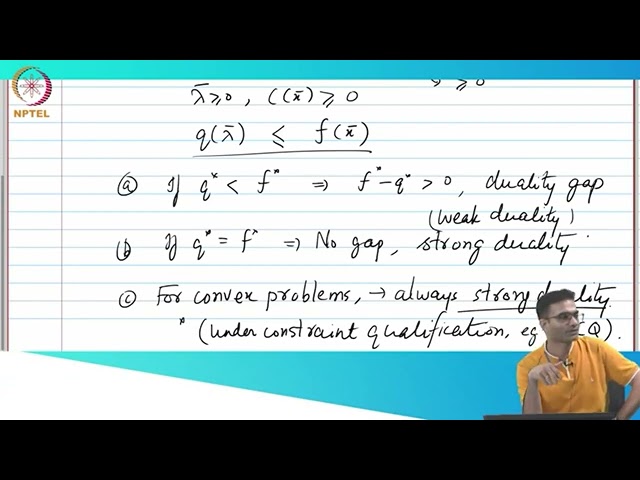 λ̄ ≥ 0 , c(x̄) ≥ 0
≥ 0
NPTEL
q(λ̄) ≤ f(x̄)
(a) If q* < f* ⇒ f* - q* > 0, duality gap
(weak duality)
(b) If q* = f* ⇒ No gap, strong duality
(c) For convex problems, → always strong duality.
* (under constraint qualification, eg Q).